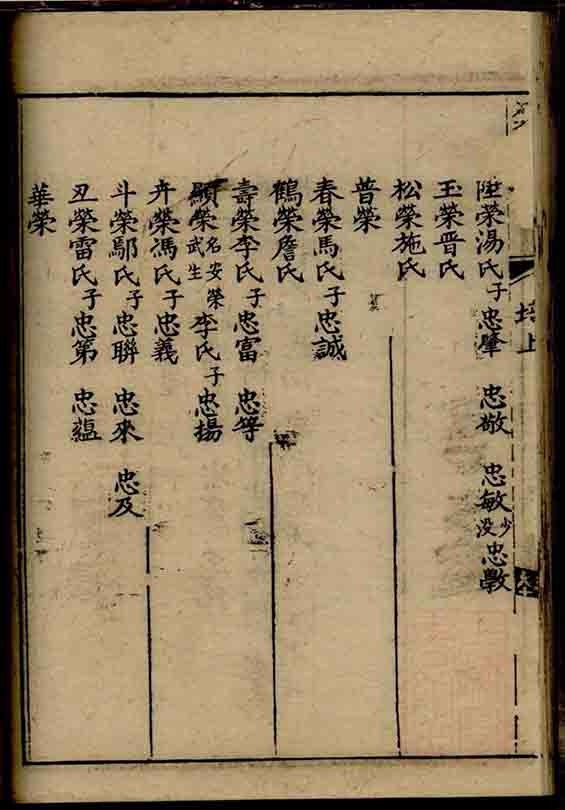 陞榮湯氏子忠肇 忠敬 忠敏少没忠斆
玉榮晋氏
松榮施氏
普榮
春榮馬氏子忠誠
鶴榮詹氏
壽榮李氏子忠富 忠等
顯榮名安榮武生李氏子忠揚
卉榮馮氏子忠義
斗榮鄢氏子忠聨 忠來 忠及
丑榮雷氏子忠第 忠蘊
華榮